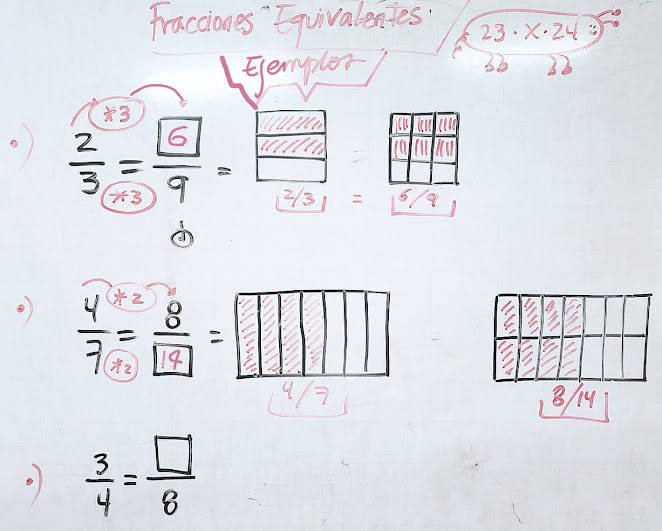 Fracciones Equivalentes
23 · X · 24
Ejemplos
*3
2/3 = 6/9 =
*3
2/3 = 6/9
*2
4/7 = 8/14 =
*2
4/7
8/14
3/4 = □/8